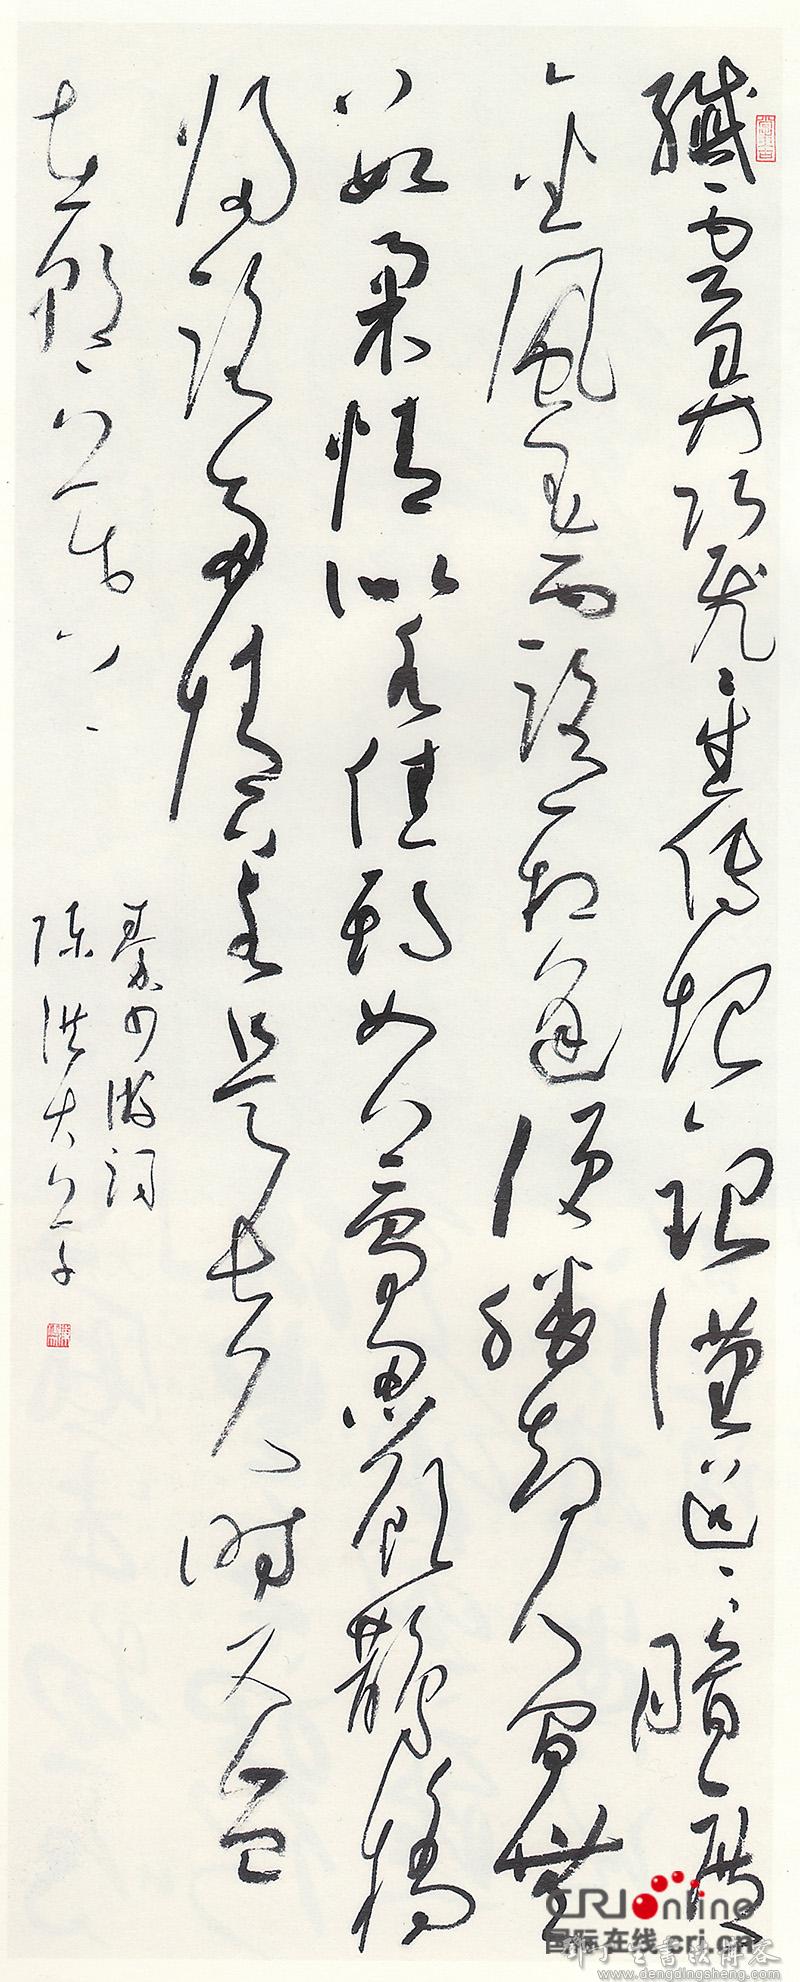 纖雲弄巧飛星傳恨銀漢迢〻暗度
金風玉露一相逢便勝却人間無
數柔情似水佳期如夢忍顧鵲橋
歸路兩情若是久長時又豈
在朝〻暮〻
秦少游詞
陳洪
CRI online
国际在线 cri.cn
邓丁生书法博客
www.dengdingsheng.com